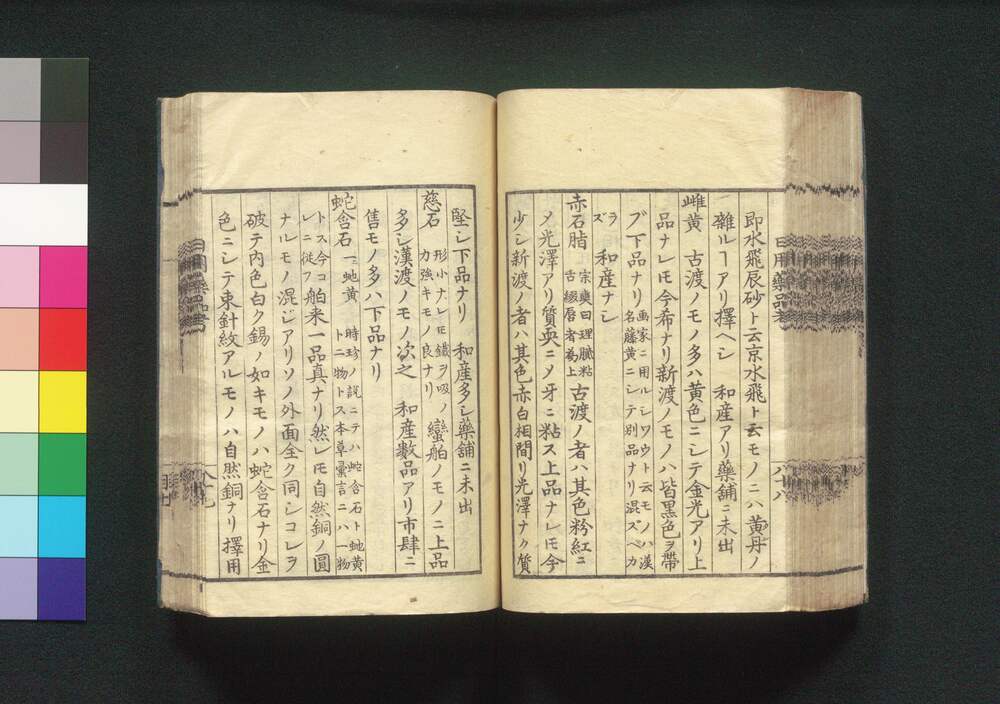 即水飛辰砂ト云京水飛ト云モノニハ黄丹ノ
雜ルヿアリ擇ヘシ 和産アリ藥舗ニ未出
雌黄 古渡ノモノ多ハ黄色ニシテ金光アリ上
品ナレ𪜈今希ナリ新渡ノモノハ皆黒色ヲ帶
ブ下品ナリ
画家ニ用ルシワウト云モノハ漢
名藤黄ニシテ別品ナリ混ズベカ
ラ
ズ
和産ナシ
赤石脂
宗奭曰理膩粘
舌綴唇者為上
古渡ノ者ハ其色粉紅ニ
〆光澤アリ質耎ニ〆牙ニ粘ス上品ナレ𪜈今
少シ新渡ノ者ハ其色赤白相間リ光澤ナク質
日用藥品考
八十八
堅シ下品ナリ 和産多シ藥舗ニ未出
慈石
形小ナレ𪜈鐵ヲ吸ノ
力強キモノ良ナリ
蠻舶ノモノニ上品
多シ漢渡ノモノ次之 和産數品アリ市肆ニ
售モノ多ハ下品ナリ
蛇含石
一ニ虵黄 時珍ノ説ニテハ蛇含石ト虵黄
トニ物トス本草彙言ニハ一物
トス今コ
レニ從フ
舶来一品真ナリ然レ𪜈自然銅ノ圓
ナルモノ混ジアリソノ外面全ク同シコレヲ
破テ内色白ク錫ノ如キモノハ蛇含石ナリ金
色ニシテ束針紋アルモノハ自然銅ナリ擇用